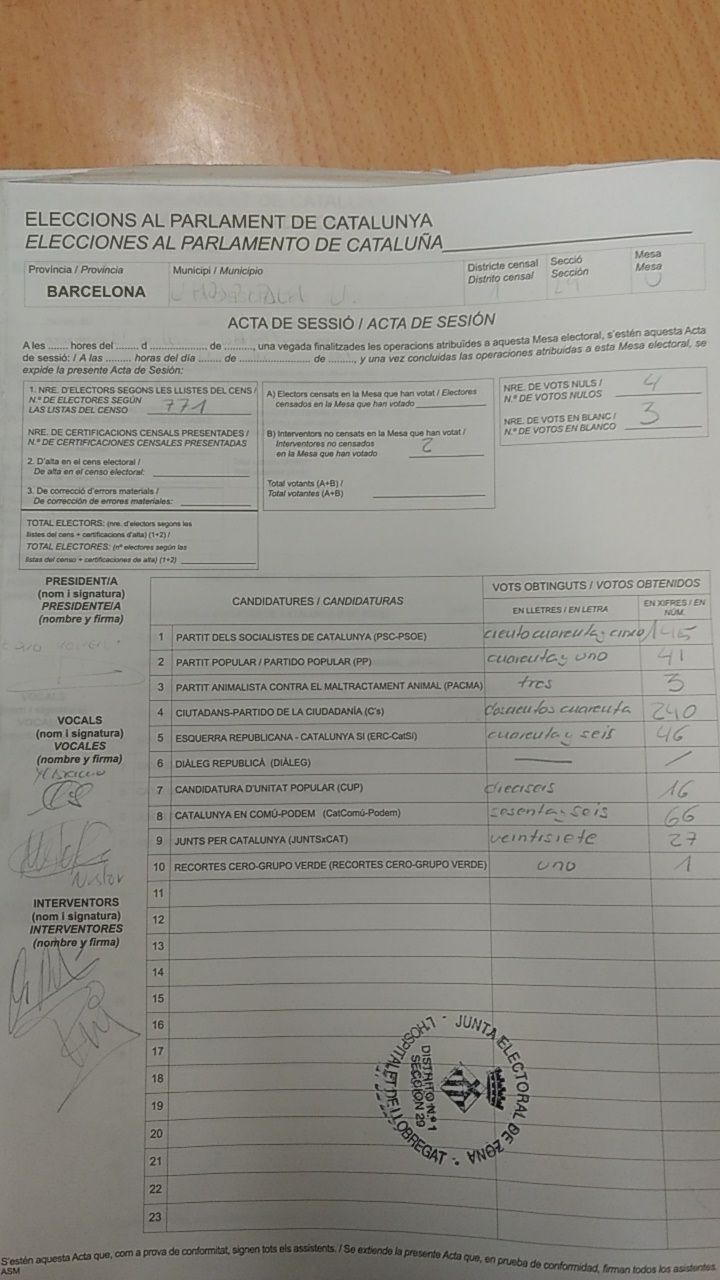 ELECCIONS AL PARLAMENT DE CATALUNYA
ELECCIONES AL PARLAMENTO DE CATALUÑA
Provincia / Provincia
BARCELONA
Municipi / Municipio
Districte censal
Distrito censal
1
Secció
Sección
29
Mesa
Mesa
U
ACTA DE SESSIÓ / ACTA DE SESIÓN
A les ....... hores del ....... d ................. de ........., una vegada finalitzades les operacions atribuïdes a aquesta Mesa electoral, s'estén aquesta Acta
de sessió: / A las ......... horas del día ....... de ..................... de ........., y una vez concluidas las operaciones atribuidas a esta Mesa electoral, se
expide la presente Acta de Sesión:
1. NRE. D'ELECTORS SEGONS LES LLISTES DEL CENS /
N.º DE ELECTORES SEGÚN
LAS LISTAS DEL CENSO 771
NRE. DE CERTIFICACIONS CENSALS PRESENTADES /
N.º DE CERTIFICACIONES CENSALES PRESENTADAS
2. D'alta en el cens electoral /
De alta en el censo electoral:
3. De correcció d'errors materials /
De corrección de errores materiales:
TOTAL ELECTORS: (nre. d'electors segons les
llistes del cens + certificacions d'alta) (1+2) /
TOTAL ELECTORES: (nº electores según las
listas del censo + certificaciones de alta) (1+2)
A) Electors censats en la Mesa que han votat / Electores
censados en la Mesa que han votado
B) Interventors no censats en la Mesa que han votat /
Interventores no censados
en la Mesa que han votado 2
Total votants (A+B) /
Total votantes (A+B)
NRE. DE VOTS NULS /
N.º DE VOTOS NULOS 4
NRE. DE VOTS EN BLANC /
N.º DE VOTOS EN BLANCO 3
PRESIDENT/A
(nom i signatura)
PRESIDENTE/A
(nombre y firma)
VOCALS
(nom i signatura)
VOCALES
(nombre y firma)
INTERVENTORS
(nom i signatura)
INTERVENTORES
(nombre y firma)
CANDIDATURES / CANDIDATURAS
VOTS OBTINGUTS / VOTOS OBTENIDOS
EN LLETRES / EN LETRA
EN XIFRES / EN NÚM.
1 PARTIT DELS SOCIALISTES DE CATALUNYA (PSC-PSOE) ciento cuarenta y cinco 145
2 PARTIT POPULAR / PARTIDO POPULAR (PP) cuarenta y uno 41
3 PARTIT ANIMALISTA CONTRA EL MALTRACTAMENT ANIMAL (PACMA) tres 3
4 CIUTADANS-PARTIDO DE LA CIUDADANÍA (C's) doscientos cuarenta 240
5 ESQUERRA REPUBLICANA - CATALUNYA SÍ (ERC-CatSí) cuarenta y seis 46
6 DIÀLEG REPUBLICÀ (DIÀLEG) — /
7 CANDIDATURA D'UNITAT POPULAR (CUP) dieciseis 16
8 CATALUNYA EN COMÚ-PODEM (CatComú-Podem) sesenta y seis 66
9 JUNTS PER CATALUNYA (JUNTSxCAT) veintisiete 27
10 RECORTES CERO-GRUPO VERDE (RECORTES CERO-GRUPO VERDE) uno 1
11
12
13
14
15
16
17
18
19
20
21
22
23
JUNTA ELECTORAL DE ZONA - L'HOSPITALET DE LLOBREGAT -
DISTRITO N.º 1
SECCION 29
S'estén aquesta Acta que, com a prova de conformitat, signen tots els assistents. / Se extiende la presente Acta que, en prueba de conformidad, firman todos los asistentes.
ASM